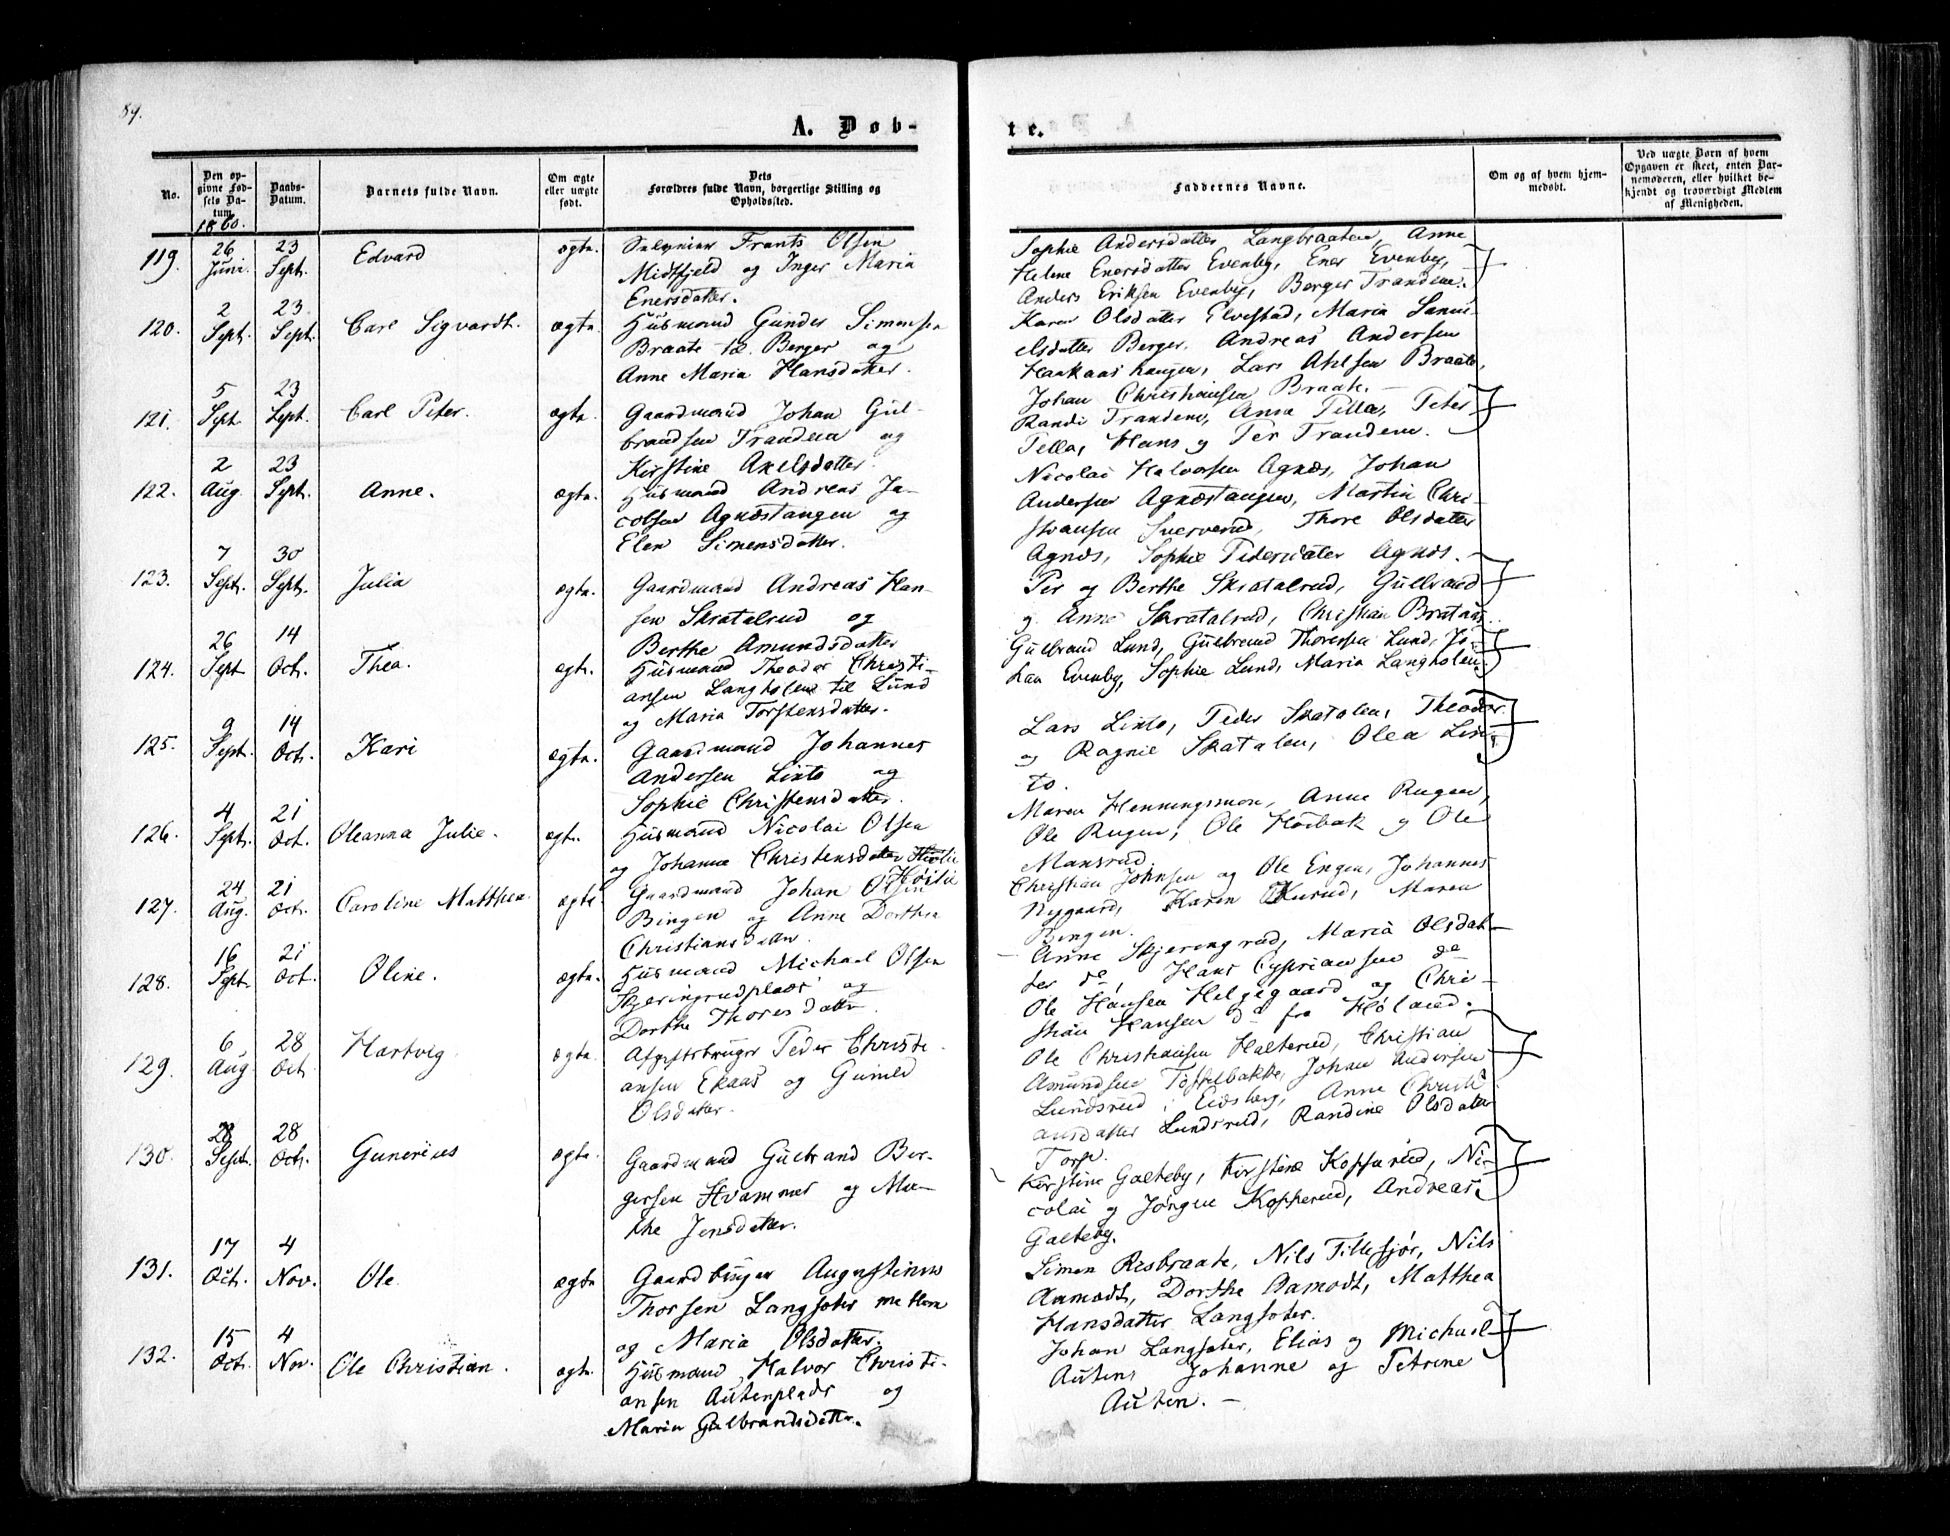 84.
A. Døb-
te.
No.
Den op-
givne Fød-
sels Da-
tum.
1860.
Daabs-
Datum.
Barnets fulde Navn.
Om ægte
eller uægte
født.
Dets
Forældres fulde Navn, borgerlige Stilling og
Opholdssted.
Faddernes Navne.
Om og af hvem hjem-
medøbt.
Ved uægte Børn af hvem
Opgaven er skeet, enten Bar-
nemoderen, eller hvilket be-
kjendt og troværdigt Medlem
af Menigheden.
119. 26 Juni. 23 Sept. Edvard ægte.
Frants Olsen
Midtfjeld og Inger Maria
Enersdatter.
Sophie Andersdatter Langbraaten, Anne
Helene Enersdatter Evenby, Ener Evenby,
Anders Eriksen Evenby, Berger Trandem.
120. 2 Sept. 23. Sept. Carl Sigvardt. ægte.
Huusmand Gunder Simensen
Braate Berger og
Anne Maria Hansdatter.
Karen Olsdatter Elvestad, Maria Samu-
elsdatter Berger. Andreas Andersen
Haukaashaugen, Lars Braate,
Johan Christiansen Braate. –
121. 5 Sept. 23 Sept. Carl Peter. ægte.
Gaardmand Johan Gul-
brandsen Trandem og
Kirstine Axelsdatter.
Randi Trandem, Anna Tilla, Peter
Tella, Hans og Per Trandem.
122. 2 Aug. 23 Sept. Anne. ægte.
Huusmand Andreas Ja-
cobsen Agnæstangen og
Elen Simensdatter.
Nicolai Halvorsen Agnæs, Johan
Andersen Agnæstangen, Martin Chri-
stiansen Thore Olsdatter
Agnæs, Sophie Pedersdatter Agnæs. –
123. 7 Sept. 30 Sept. Julia ægte.
Gaardmand Andreas Han-
sen Skratalrud og
Berthe Amundsdatter
Per og Berthe Skratalrud, Gulbrand
g. Anne Skratalrud, Christian Brataas.
124. 26 Sept 14 Oct. Thea. ægte.
Huusmand Theodor Christi-
ansen Langholen til Lund
og Maria Torstensdatter.
Gulbrand Lund, Gulbrand Thoressen Lund, Jo-
han Evenby, Sophie Lund, Maria Langholen.
125. 9 Sept. 14 Oct. Kari ægte.
Gaardmand Johannes
Andersen Linto og
Sophie Christensdatter.
Lars Linto, Peder Skatolen, Theodor
og Ragnie Skatalen, Olea Lin-
to.
126. 4 Sept. 21 Oct. Oleanna Julie. ægte.
Huusmand Nicolai Olsen
og Johanne Christensdatter
Høilie
Maren Henningsmoen, Anne Rugen,
Ole Rugen, Ole Høibak og Ole
Mansrud.
127. 24 Aug. 21 Oct. Caroline Matthea. ægte
Gaardmand Johan Olsen
Bingen og Anne Dorthea
Christiansdatter
Christian Johnsen og Ole Engen, Johannes
Nygaard, Karen Kurud, Maren
Bingen.
128. 16 Sept. 21 Oct. Oline. ægte.
Huusmand Michael Olsen
Skjeringrudplads og
Dorthe Thoresdatter
– Anne Skjeringrud, Maria Olsdat-
ter do, Hans Cyprianssen do
Ole Hansen Helgegaard og Chri-
stian Hansen do fra Høland.
129. 6 Aug 28 Oct Hartvig ægte.
Afgiftsbruger Peder Christi-
ansen Ekaas og Gunild
Olsdatter.
Ole Christiansen Halterud, Christian
Amundsen Tøffelbakke, Johan Andersen
Lundsrud i Eidsberg, Anne Christi-
ansdatter Lundsrud, Randine Olsdatter
Torp.
130. 28 Sept. 28 Oct. Gunerius ægte.
Gaardmand Gulbrand Ber-
gersen Hvammer og Ma-
the Jensdatter.
Kirstine Galteby, Kirstine Kopperud, Ni-
colai og Jørgen Kopperud, Andreas
Galteby.
131. 17 Oct. 4 Nov. Ole ægte
Gaardbruger Augustinus
Thorsen Langsæter mellem
og Maria Olsdatter.
Simen Risbraate, Nils Tillesjør, Nils
Aamodt, Dorthe Aamodt, Matthea
Hansdatter Langsæter.
132. 15 Oct. 4 Nov. Ole Christian. ægte.
Huusmand Halvor Christi-
ansen Autenplads og
Maria Gulbrandsdatter.
Johan Langsæter, Elias og Michael
Auten, Johanne og Petrine
Auten. –